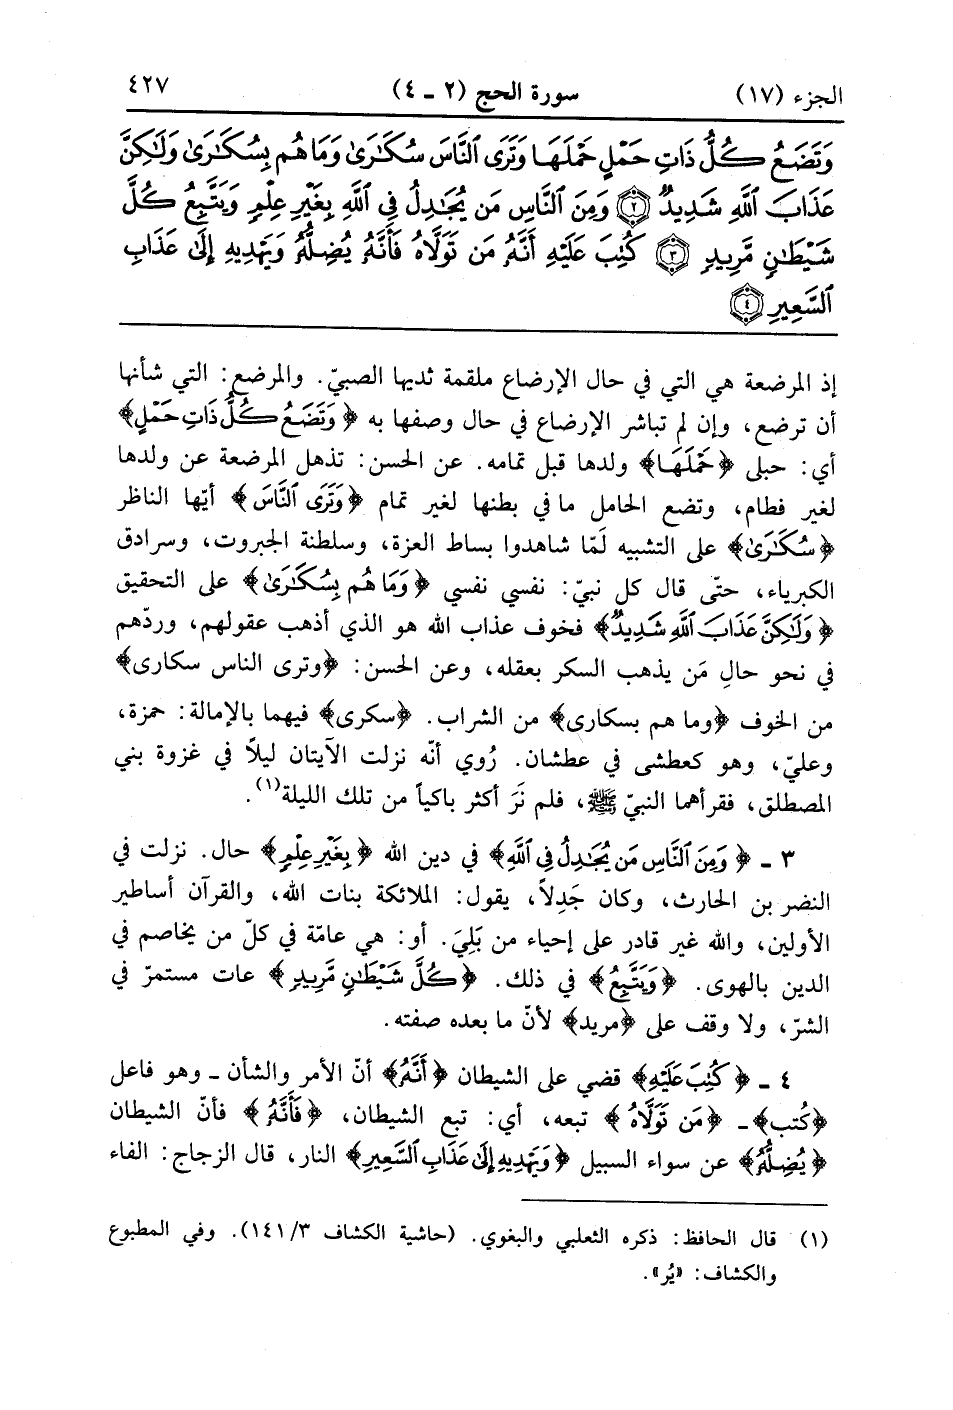 الجزء (١٧) سورة الحج (٢ ـ ٤) ٤٢٧
وَتَضَعُ كُلُّ ذَاتِ حَمْلٍ حَمْلَهَا وَتَرَى ٱلنَّاسَ سُكَٰرَىٰ وَمَا هُم بِسُكَٰرَىٰ وَلَٰكِنَّ
عَذَابَ ٱللَّهِ شَدِيدٌ ٢ وَمِنَ ٱلنَّاسِ مَن يُجَٰدِلُ فِى ٱللَّهِ بِغَيْرِ عِلْمٍ وَيَتَّبِعُ كُلَّ
شَيْطَٰنٍ مَّرِيدٍ ٣ كُتِبَ عَلَيْهِ أَنَّهُۥ مَن تَوَلَّاهُ فَأَنَّهُۥ يُضِلُّهُۥ وَيَهْدِيهِ إِلَىٰ عَذَابِ
ٱلسَّعِيرِ ٤
إذ المرضعة هي التي في حال الإرضاع ملقمة ثديها الصبيّ. والمرضع: التي شأنها
أن ترضع، وإن لم تباشر الإرضاع في حال وصفها به ﴿وَتَضَعُ كُلُّ ذَاتِ حَمْلٍ﴾
أي: حبلى ﴿حَمْلَهَا﴾ ولدها قبل تمامه. عن الحسن: تذهل المرضعة عن ولدها
لغير فطام، وتضع الحامل ما في بطنها لغير تمام ﴿وَتَرَى ٱلنَّاسَ﴾ أيّها الناظر
﴿سُكَٰرَىٰ﴾ على التشبيه لَمّا شاهدوا بساط العزة، وسلطنة الجبروت، وسرادق
الكبرياء، حتّى قال كل نبيّ: نفسي نفسي ﴿وَمَا هُم بِسُكَٰرَىٰ﴾ على التحقيق
﴿وَلَٰكِنَّ عَذَابَ ٱللَّهِ شَدِيدٌ﴾ فخوف عذاب الله هو الذي أذهب عقولهم، وردّهم
في نحو حالِ مَن يذهب السكر بعقله، وعن الحسن: ﴿وترى الناس سكارى﴾
من الخوف ﴿وما هم بسكارى﴾ من الشراب. ﴿سكرى﴾ فيهما بالإمالة: حمزة،
وعليّ، وهو كعطشى في عطشان. رُوي أنّه نزلت الآيتان ليلاً في غزوة بني
المصطلق، فقرأهما النبيّ ﷺ، فلم نَرَ أكثر باكياً من تلك الليلة(١).
٣ ـ ﴿وَمِنَ ٱلنَّاسِ مَن يُجَٰدِلُ فِى ٱللَّهِ﴾ في دين الله ﴿بِغَيْرِ عِلْمٍ﴾ حال. نزلت في
النضر بن الحارث، وكان جَدِلاً، يقول: الملائكة بنات الله، والقرآن أساطير
الأولين، والله غير قادر على إحياء من بَلِيَ. أو: هي عامّة في كلّ من يخاصم في
الدين بالهوى. ﴿وَيَتَّبِعُ﴾ في ذلك. ﴿كُلَّ شَيْطَٰنٍ مَّرِيدٍ﴾ عات مستمرّ في
الشرّ، ولا وقف على ﴿مريد﴾ لأنّ ما بعده صفته.
٤ ـ ﴿كُتِبَ عَلَيْهِ﴾ قضي على الشيطان ﴿أَنَّهُۥ﴾ أنّ الأمر والشأن ـ وهو فاعل
﴿كُتب﴾ ـ ﴿مَن تَوَلَّاهُ﴾ تبعه، أي: تبع الشيطان، ﴿فَأَنَّهُۥ﴾ فأنّ الشيطان
﴿يُضِلُّهُۥ﴾ عن سواء السبيل ﴿وَيَهْدِيهِ إِلَىٰ عَذَابِ ٱلسَّعِيرِ﴾ النار، قال الزجاج: الفاء
(١) قال الحافظ: ذكره الثعلبي والبغوي. (حاشية الكشاف ٣/ ١٤١). وفي المطبوع
والكشاف: «يُر».